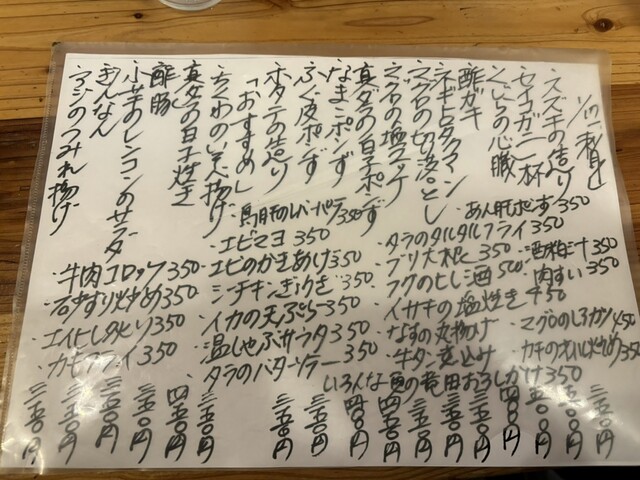 スズキの造り
セイコガニ一杯
くじらの心臓
酢ガキ
ネギトロタクマン
マグロの切り落とし
マグロの塩ユッケ
真ダラの白子ポンず
なまこポンず
ふぐ皮ポンず
ホタテの造り
「おすすめ」
ちくわのいそ揚げ
真ダラの白子焼き
酢豚
レンコンのサラダ
ぎんなん
アジのつみれ揚げ
・あん肝ポンず350
・タラのタルタルフライ350
・ブリ大根350
・酒粕汁350
・フグのヒレ酒500
・肉すい350
・イサキの塩焼き450
・なすの丸揚げ
・牛タン煮込み
・カキのオイル炒め350
いろんな魚の竜田おろしがけ350
・鳥肝のレバーパテ350
・エビマヨ350
・エビのかきあげ350
・シチキンぎょうざ350
・イカの天ぷら350
・温しゃぶサラダ350
・タラのバターソテー350
・牛肉コロッケ350
・石ずり炒め350
・エイヒレあぶり350
・カモフライ350
三五〇円
四〇〇円
五〇〇円
四〇〇円
三五〇円
三五〇円
三五〇円
四五〇円
四〇〇円
三五〇円
三五〇円
三五〇円
四五〇円
三五〇円
三五〇円
三五〇円
三五〇円